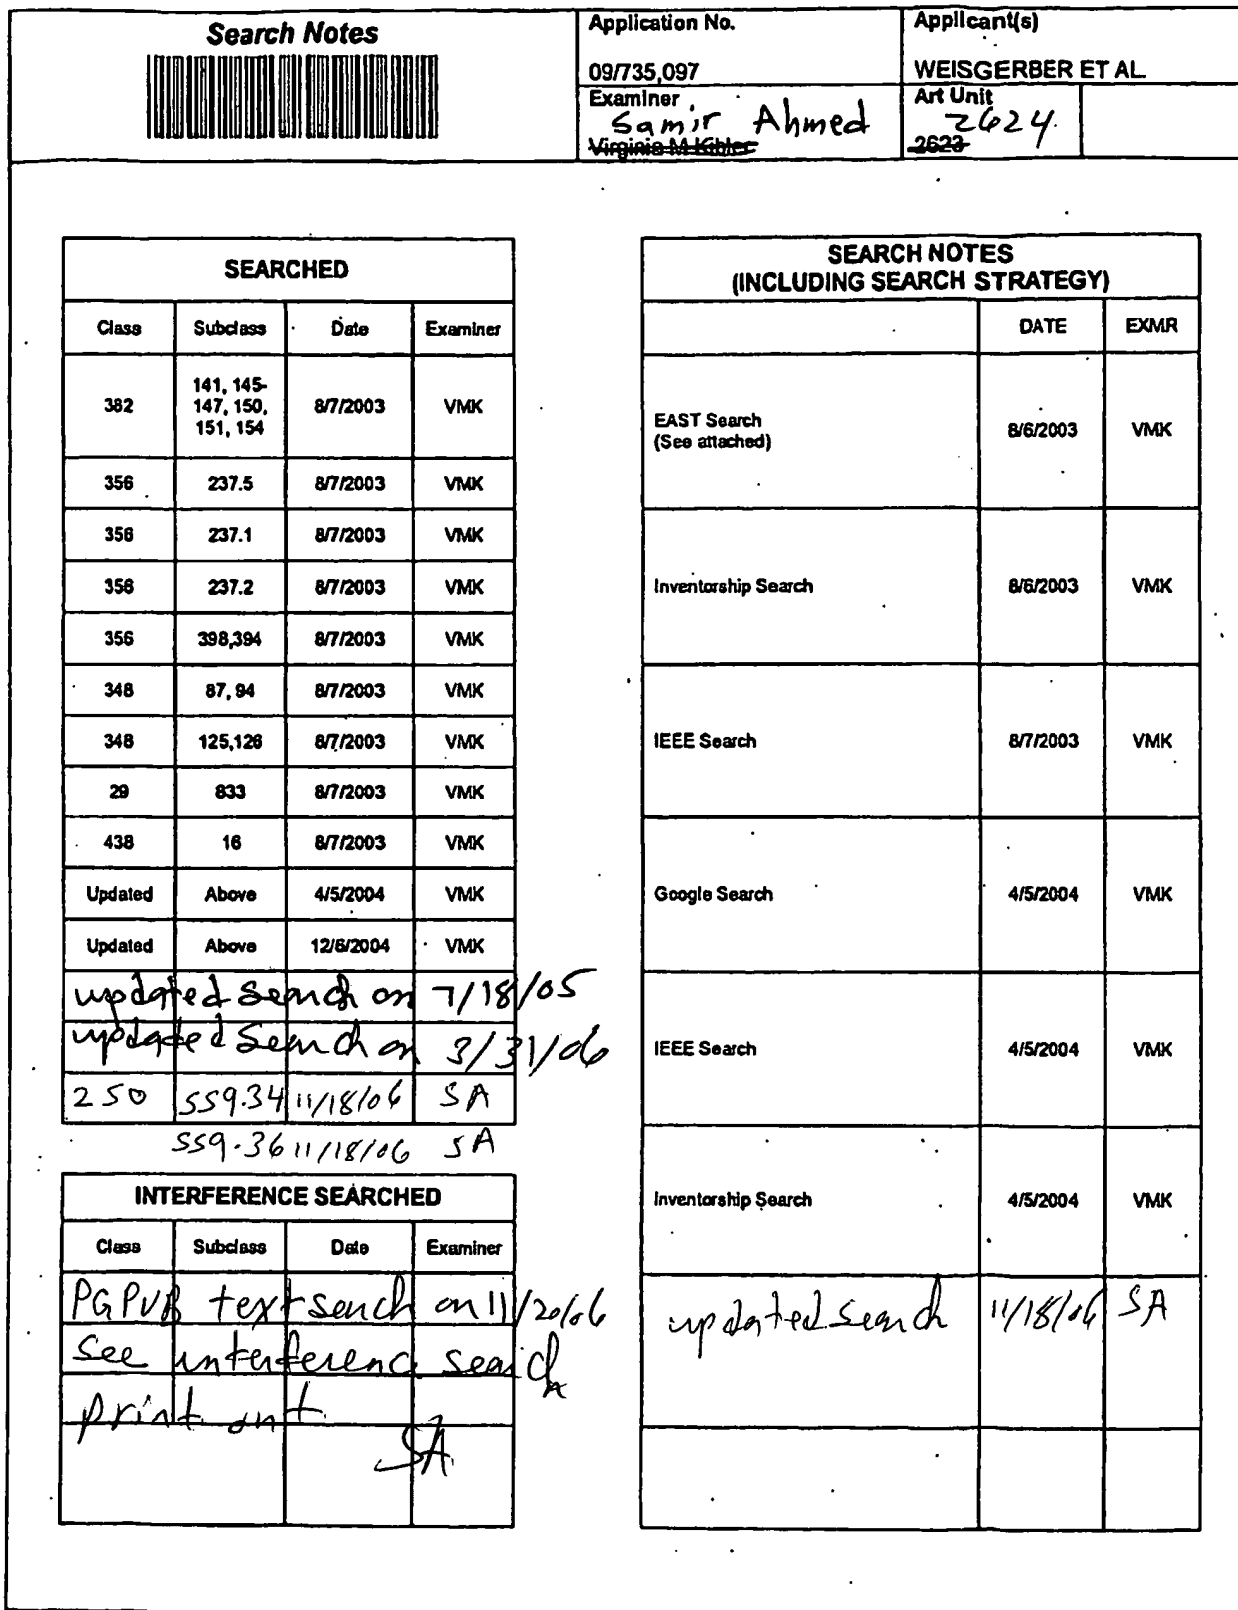 Search Notes
Application No.
09/735,097
Applicant(s)
WEISGERBER ET AL
Examiner
Samir Ahmed
Virginia M Kibler
Art Unit
2624
2623
SEARCHED
Class Subclass Date Examiner
382 141, 145-
147, 150,
151, 154 8/7/2003 VMK
356 237.5 8/7/2003 VMK
356 237.1 8/7/2003 VMK
356 237.2 8/7/2003 VMK
356 398,394 8/7/2003 VMK
348 87, 94 8/7/2003 VMK
348 125,126 8/7/2003 VMK
29 833 8/7/2003 VMK
438 16 8/7/2003 VMK
Updated Above 4/5/2004 VMK
Updated Above 12/6/2004 VMK
updated search on 7/18/05
updated search on 3/31/06
250 559.34 11/18/06 SA
559.36 11/18/06 SA
INTERFERENCE SEARCHED
Class Subclass Date Examiner
PGPUB text search on 11/20/06
See interference search
print out
SA
SEARCH NOTES
(INCLUDING SEARCH STRATEGY)
DATE EXMR
EAST Search
(See attached) 8/6/2003 VMK
Inventorship Search 8/6/2003 VMK
IEEE Search 8/7/2003 VMK
Google Search 4/5/2004 VMK
IEEE Search 4/5/2004 VMK
Inventorship Search 4/5/2004 VMK
updated search 11/18/06 SA